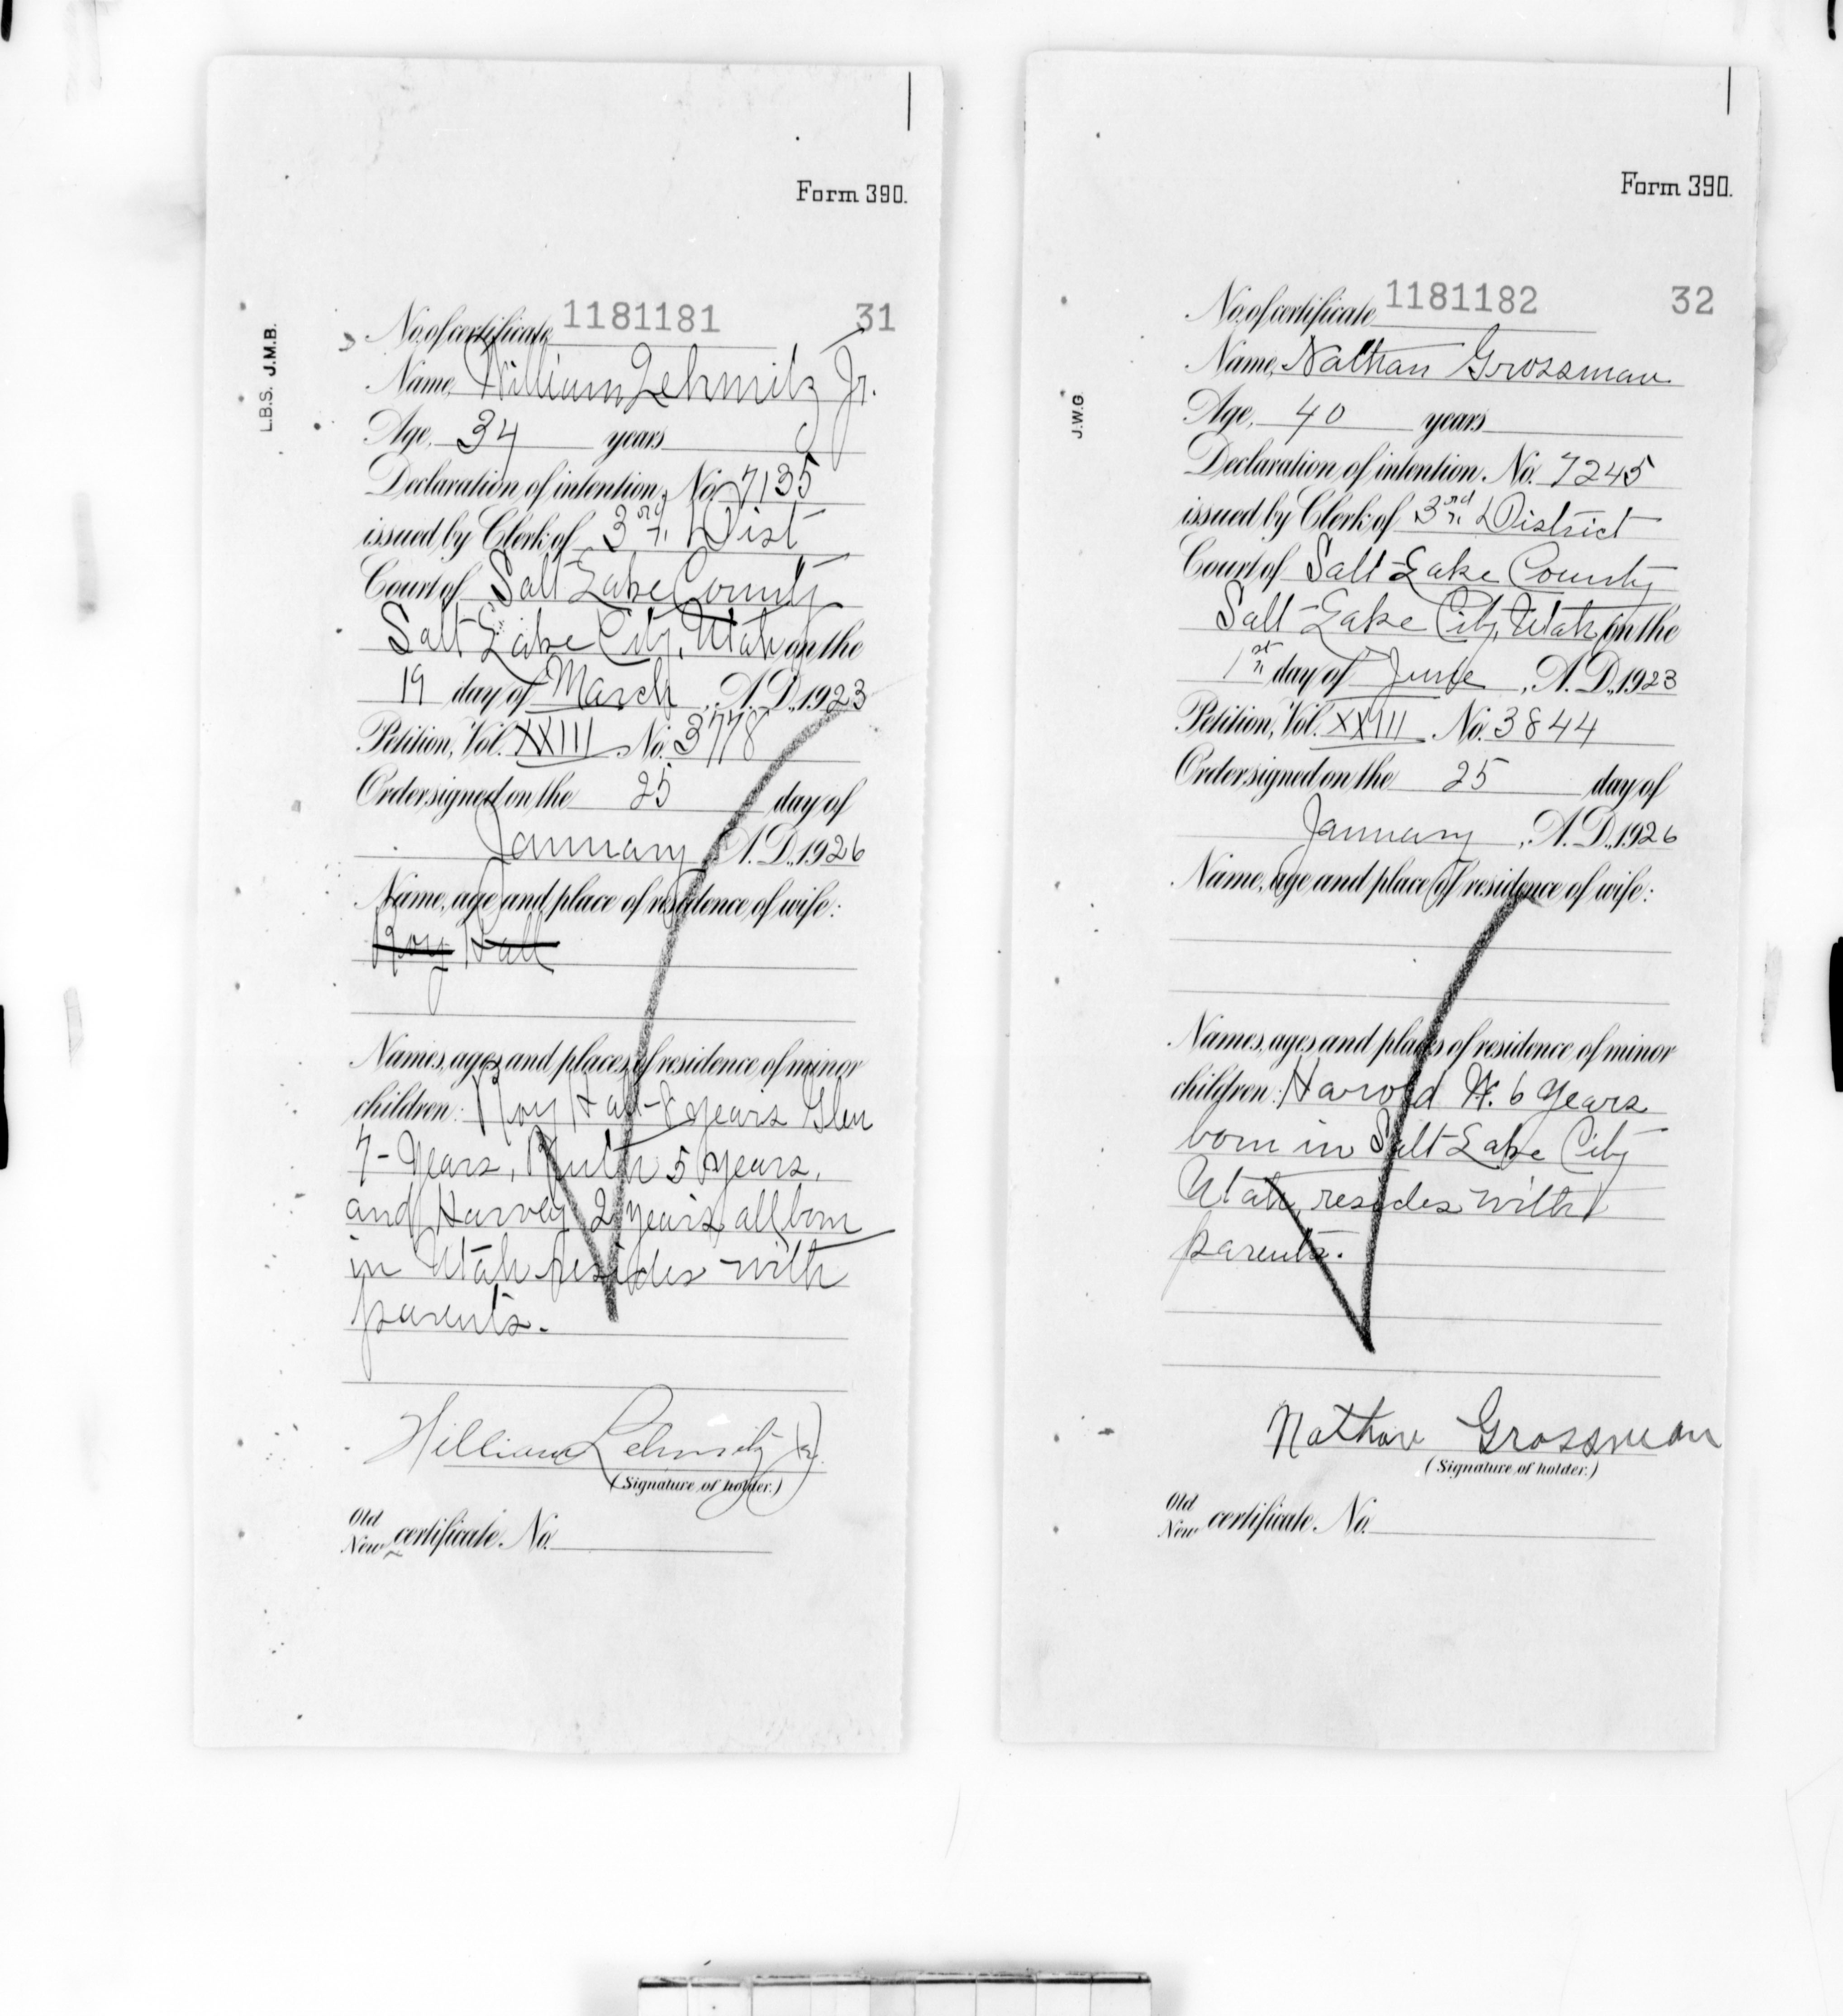 Form 390.
L.B.S. J.M.B.
No. of certificate 1181181 31
Name, William Lehmitz Jr.
Age, 34 years
Declaration of intention, No. 7135
issued by Clerk of 3rd Dist
Court of Salt Lake County
Salt Lake City, Utah on the
19 day of March, A.D., 1923
Petition, Vol. XXIII No. 3778
Order signed on the 25 day of
January A.D., 1926
Name, age and place of residence of wife:
Roy Hall
Names, ages and places of residence of minor
children: Roy Hall-8 years Glen
7-Years, Ruth 5 years,
and Harvey 2 years all born
in Utah resides with
parents.
William Lehmitz Jr.
(Signature of holder.)
Old
New certificate. No.
Form 390.
J.W.G.
No. of certificate 1181182 32
Name, Nathan Grossman
Age, 40 years
Declaration of intention. No. 7245
issued by Clerk of 3rd District
Court of Salt Lake County
Salt Lake City, Utah on the
1st day of June, A.D., 1923
Petition, Vol. XXIII No. 3844
Order signed on the 25 day of
January, A.D., 1926
Name, age and place of residence of wife:
Names, ages and places of residence of minor
children: Harold W. 6 years
born in Salt Lake City
Utah, resides with
parents.
Nathan Grossman
(Signature of holder.)
Old
New certificate. No.